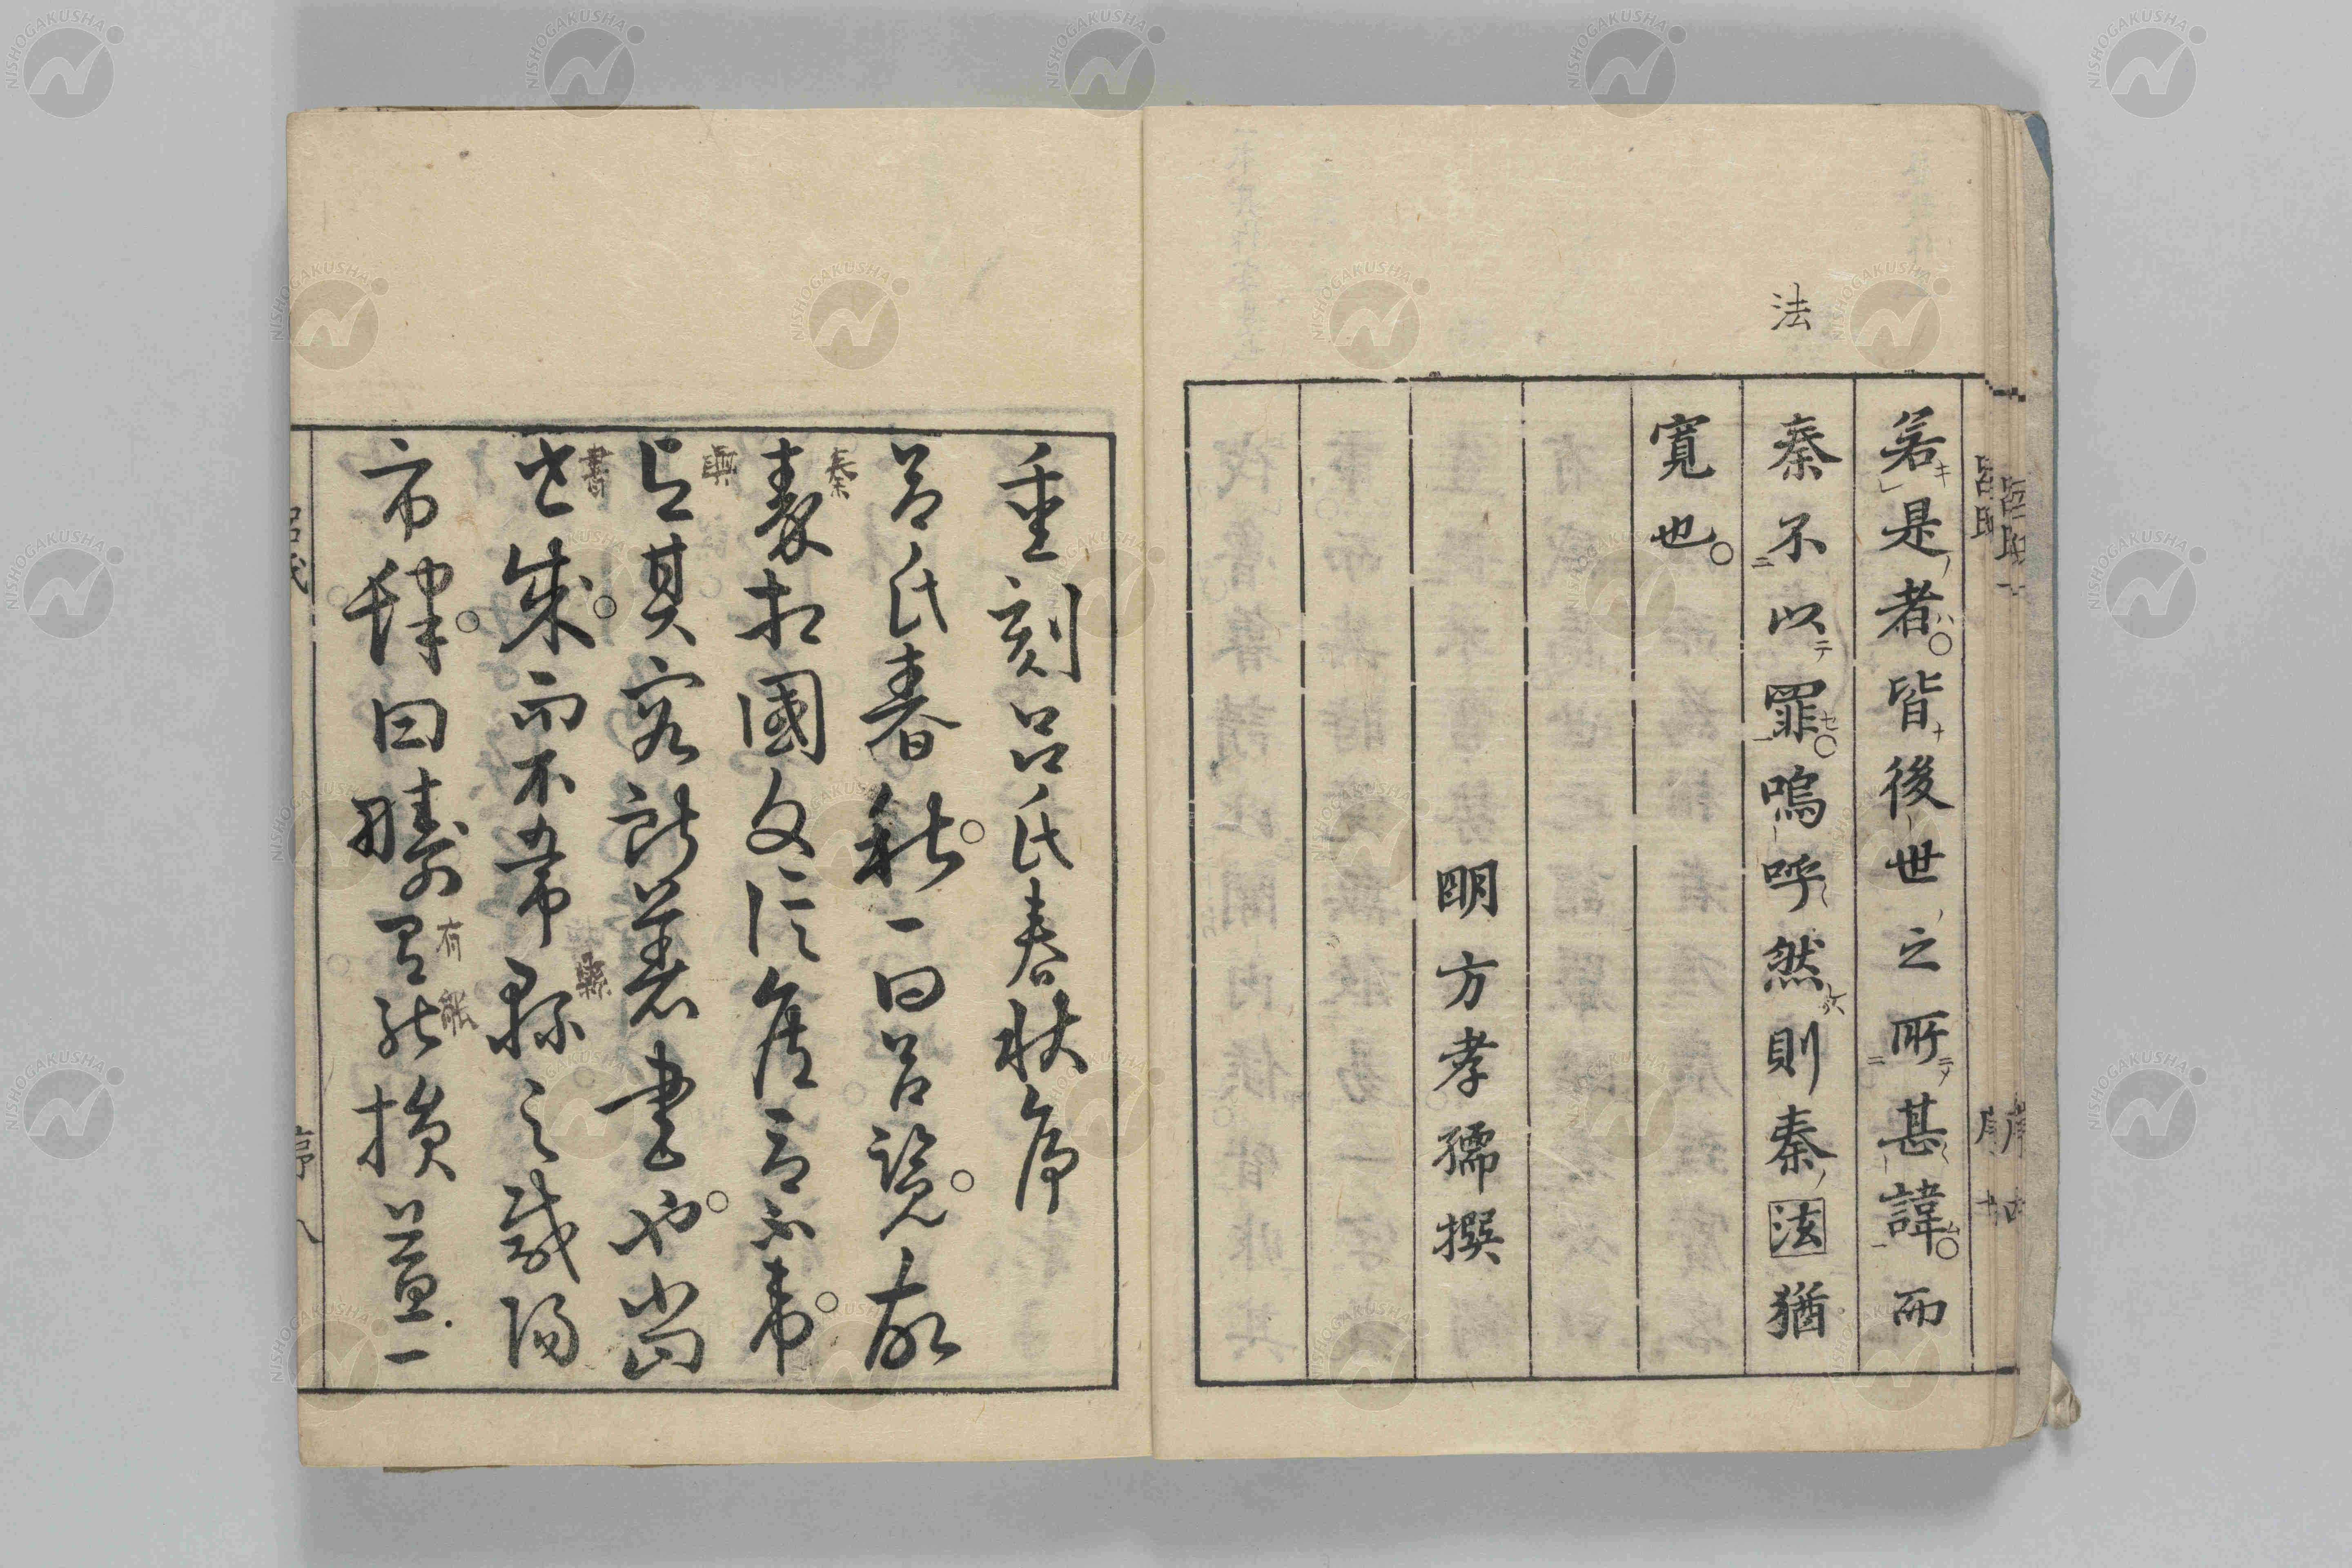 法
若是者皆後世之所甚諱而
秦不以罪嗚呼然則秦法猶
寬也
明方孝孺撰
重刻呂氏春秋序
呂氏春秋一曰呂覽故
秦相國文信侯呂不韋
與其客所著書也尚
書成而不韋縣之咸陽
市肆曰疇有能損益一
秦
與
書
縣
有能
呂氏
序
NISHOGAKUSHA